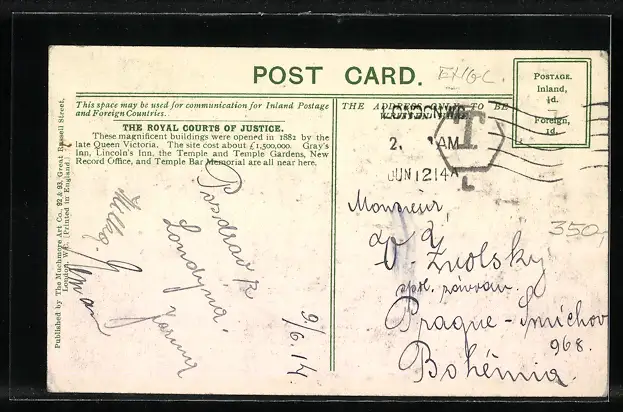 POST CARD.
EXGC.
POSTAGE.
Inland,
½d.
Foreign,
1d.
This space may be used for communication for Inland Postage
and Foreign Countries.
THE ADDRESS ONLY TO BE
THE ROYAL COURTS OF JUSTICE.
These magnificent buildings were opened in 1882 by the
late Queen Victoria. The site cost about £1,500,000. Gray's
Inn, Lincoln's Inn, the Temple and Temple Gardens, New
Record Office, and Temple Bar Memorial are all near here.
LONDON. W.C.
2. AM
JUN 12 14
T
L
Pozdrav z
Londýna.
9/6.14.
Monsieur,
V. Zvolský
Prague - Smíchov
968.
Bohémia.
350,-
Published by The Muchmore Art Co. 92 & 93, Great Russell Street,
London, W.C. [Printed in England.]